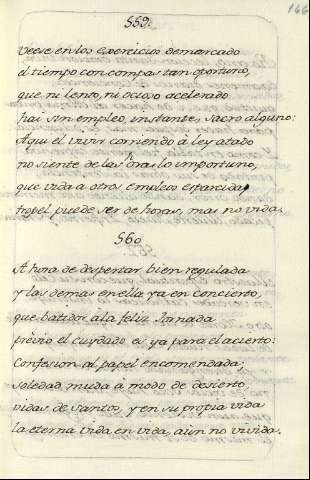 166
559.
Veese en los exercicios demarcado
el tiempo con compas tan oportuno,
que ni lento, ni ocioso acelerado
hai sin empleo, instante, sacro alguno:
Aqui el vivir corriendo à ley atado
no siente de las horas lo importuno,
que vida a otros empleos esparcida,
tropel puede ser de horas, mas no vida.
560
A hora de despertar bien regulada
y las demas en ella ya en concierto,
que batidor à la feliz Jornada
previno el cuydado es ya para el acierto:
Confesion al papel encomendada;
soledad muda à modo de desierto,
vidas de santos, y en su propia vida
la eterna vida en vida, aun no vivida.